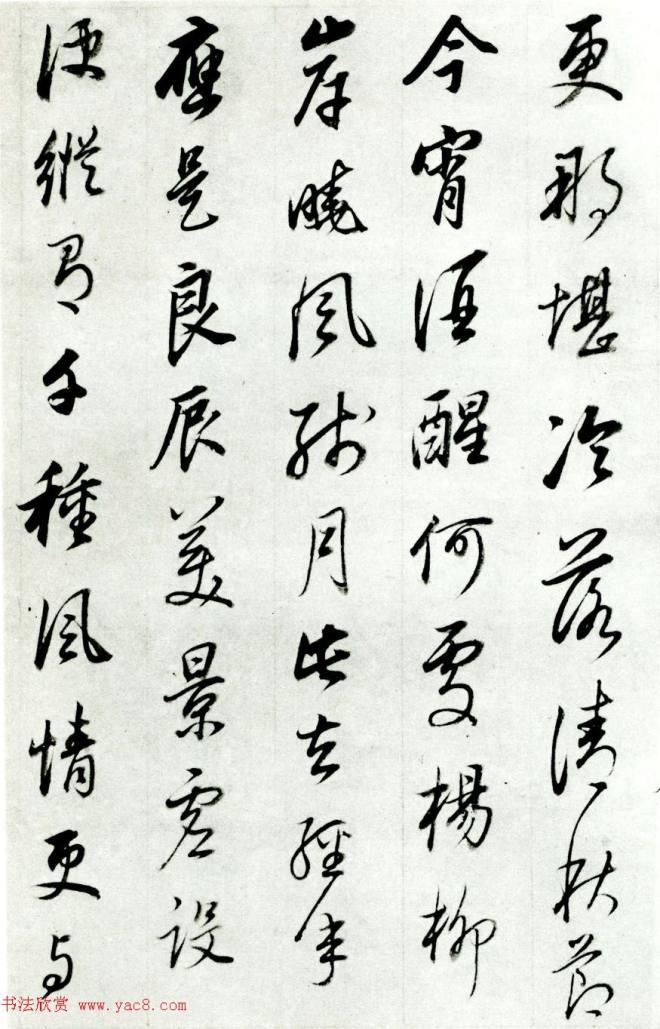 更那堪冷落清秋節
今宵酒醒何處楊柳
岸曉風殘月此去經年
應是良辰美景虛設
便縱有千種風情更与
书法欣赏 www.yac8.com